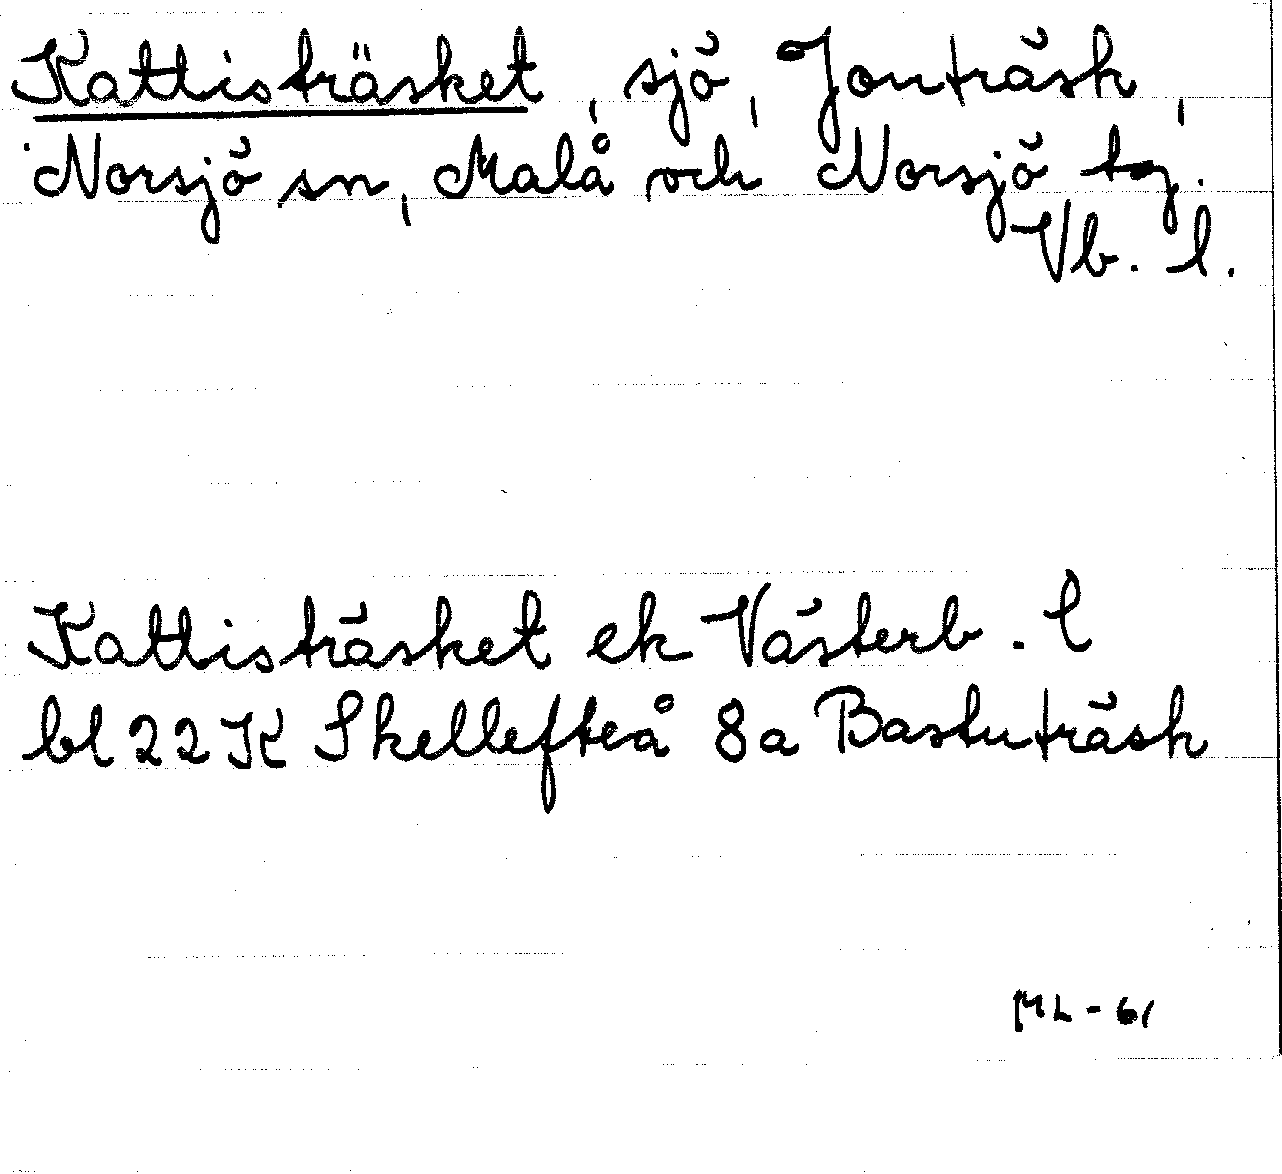 Kattisträsket, sjö, Jonträsk,
Norsjö sn, Malå och Norsjö tg.
Vb. l.
Kattisträsket ek Västerb. l
bl 22 K Skellefteå 8a Bastuträsk
ML - 61